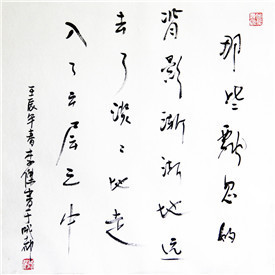 那些飘忽的
背影渐渐地远
去了淡〻地走
入了云层之中
壬辰年春李傑书于成都